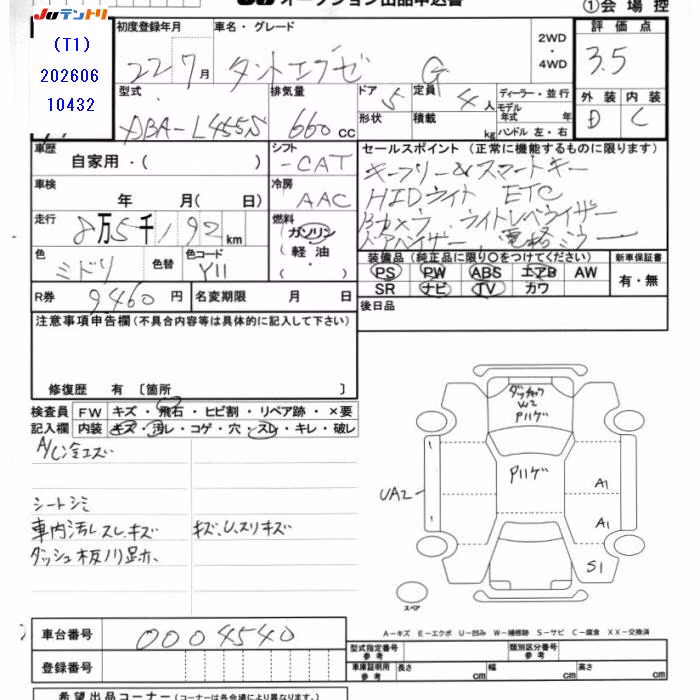 JUテントリ オークション出品申込書 ①会場控
(T1)
202606
10432
初度登録年月 車名・グレード 2WD 評価点
22 7月 タントエグゼ G ・4WD 3.5
型式 排気量 ドア 5 定員 4人 ディーラー・並行 外装 内装
DBA-L455S 660cc 形状 積載 kg モデル年式 年 D C
ハンドル 左・右
車歴 自家用・( ) シフト -CAT セールスポイント (正常に機能するものに限ります)
キーフリー&スマートキー
車検 年 月( 日) 冷房 AAC HIDライト ETC
走行 8万5千192km 燃料 ガソリン Bカメラ ライトレベライザー
(軽油) ドアバイザー 電格ミラー
色 ミドリ 色替 色コード Y11 装備品 (純正品に限り○をつけてください) 新車保証書
PS PW ABS エアB AW 有・無
R券 9460円 名変期限 月 日 SR ナビ TV カワ
注意事項申告欄 (不具合内容等は具体的に記入して下さい) 後日品
修復歴 有 [箇所 ]
検査員 FW キズ・飛石・ヒビ割・リペア跡・×要
記入欄 内装 キズ・汚レ・コゲ・穴・スレ・キレ・破レ
A/C冷エズ
シートシミ
車内汚レスレ、キズ キズ、U、スリキズ
ダッシュ板ノリ足ホ.
W2
Pハゲ
Pハゲ
UA2
A1
A1
S1
スペア
車台番号 0004540 A-キズ E-エクボ U-凹み W-補修跡 S-サビ C-腐食 XX-交換済
登録番号 型式指定番号 参考 類別区分番号 参考
車庫証明用 参考 長さ cm 幅 cm 高さ cm
希望出品コーナー (コーナーは各会場により異なります。)